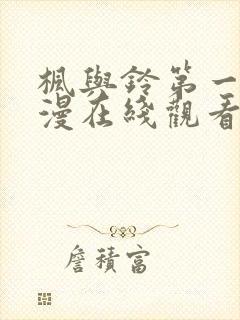 楓與鈴第一
漫在綫觀看
詹積富